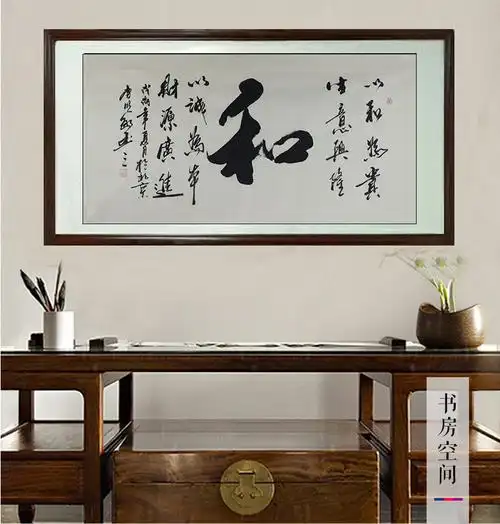 以和為貴
生意興隆
和
以誠為本
財源廣進
戊戌年夏月於北京
书房空间